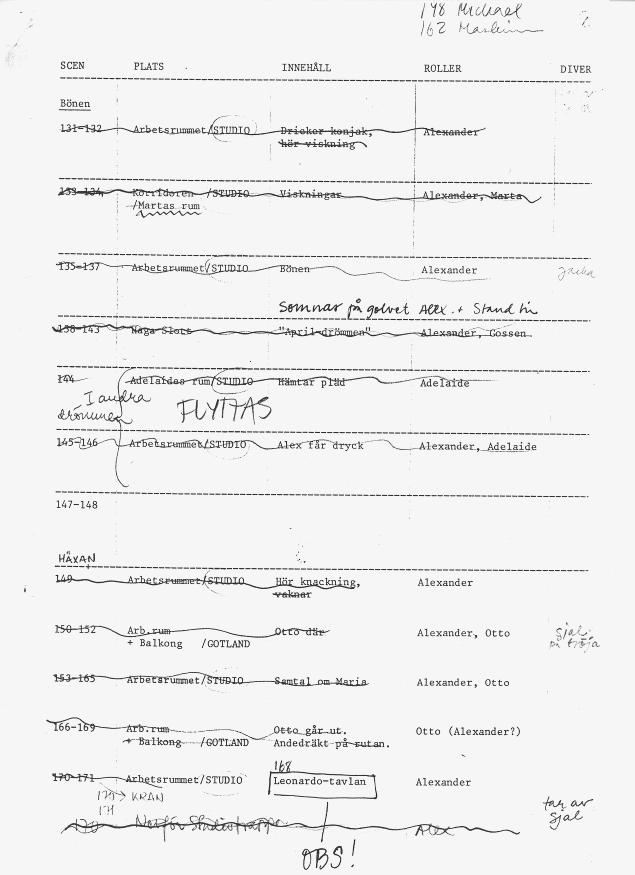 198 Michael
162
SCEN PLATS INNEHÅLL ROLLER DIVER
Bönen
131-132 Arbetsrummet/STUDIO Dricker konjak, Alexander
hör viskning
133-134 Korridoren /STUDIO Viskningar Alexander, Marta
/Martas rum
135-137 Arbetsrummet/STUDIO Bönen Alexander jacka
Somnar på golvet Alex. + Stand in
138-143 Naga Slott "April-drömmen" Alexander, Gossen
144 Adelaides rum/STUDIO Hämtar pläd Adelaide
I andra
drömmen FLYTTAS
145-146 Arbetsrummet/STUDIO Alex får dryck Alexander, Adelaide
147-148
HÄXAN
149 Arbetsrummet/STUDIO Hör knackning, Alexander
vaknar
150-152 Arb.rum Otto där Alexander, Otto sjal
+ Balkong /GOTLAND på tröja
153-165 Arbetsrummet/STUDIO Samtal om Maria Alexander, Otto
166-169 Arb.rum Otto går ut. Otto (Alexander?)
+ Balkong /GOTLAND Andedräkt på rutan.
168
170-171 Arbetsrummet/STUDIO Leonardo-tavlan Alexander
→ KRAN
171 tar av
sjal
Alex
OBS!